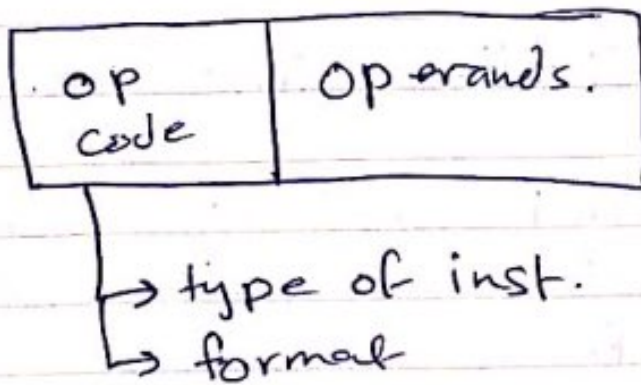 op
code
operands.
→ type of inst.
→ format